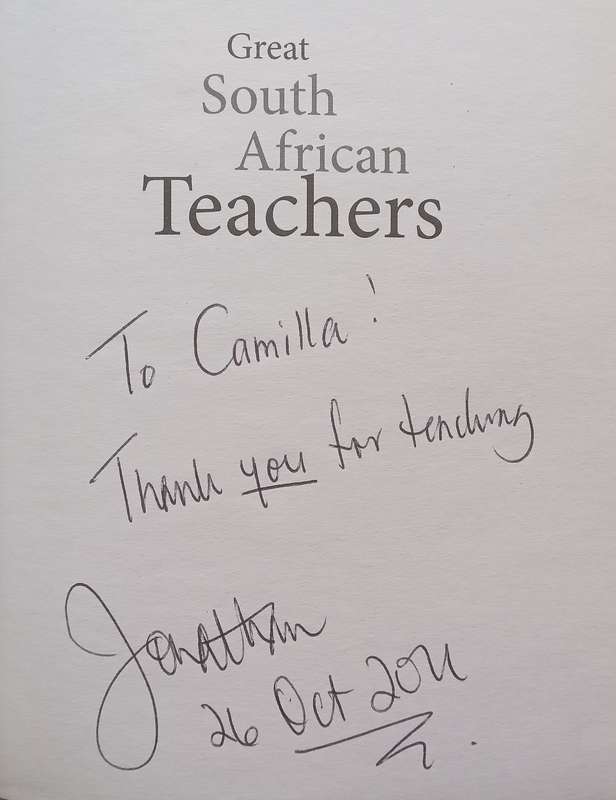 Great
South
African
Teachers
To Camilla!
Thank you for teaching
Jonathan
26 Oct 2011